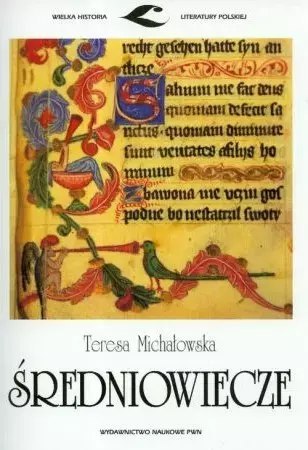 WIELKA HISTORIA LITERATURY POLSKIEJ
recht geschen hatte syn an
thcze
Saluum me fac deus
quoniam defecit sa
nctus · quoniam diminute
sunt veritates a filys ho
minum
Zbawona me vczyn gos
podne bo nestatczil swøty
Teresa Michałowska
ŚREDNIOWIECZE
WYDAWNICTWO NAUKOWE PWN